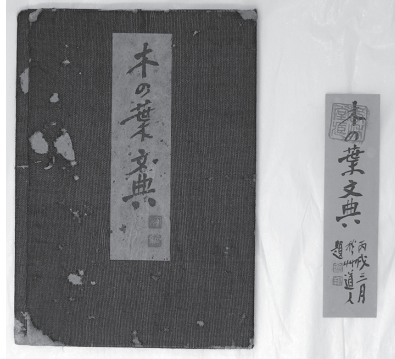 木の葉文典
木の葉文典
丙戌三月
道人
題